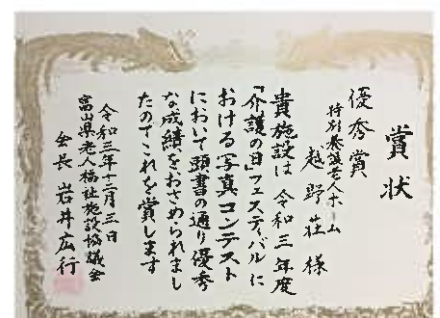 賞状
優秀賞
特別養護老人ホーム
越野荘 様
貴施設は 令和三年度
「介護の日」フェスティバルに
おける写真コンテスト
において頭書の通り優秀
な成績をおさめられまし
たのでこれを賞します
令和三年十二月三日
富山県老人福祉施設協議会
会長 岩井広行